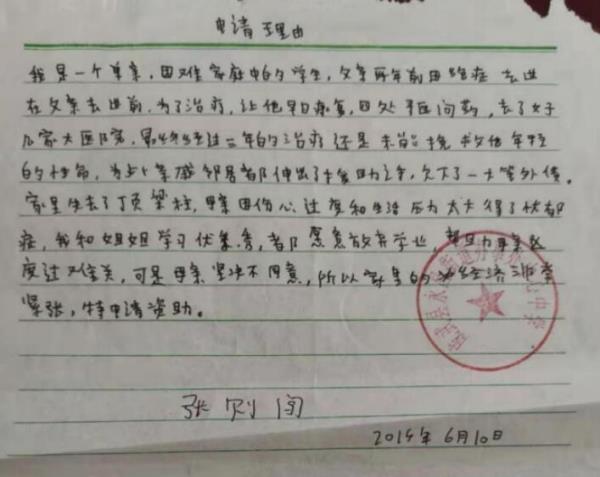 申请理由
我是一个单亲,困难家庭中的学生,父亲两年前因癌症去世
在父亲去世前,为了治疗,让他早日康复,四处求医问药,去了好
几家大医院,最终经过二年的治疗还是未能挽救他年轻
的性命,为此亲戚邻居都伸出了援助之手,欠下了一大笔外债。
家里失去了顶梁柱,母亲因伤心过度和生活压力太大得了忧郁
症,我和姐姐学习优秀,都愿意放弃学业,帮助母亲
度过难关,可是母亲坚决不同意,所以家里的经济非常
紧张,特申请资助。
张则闯
2015年6月10日